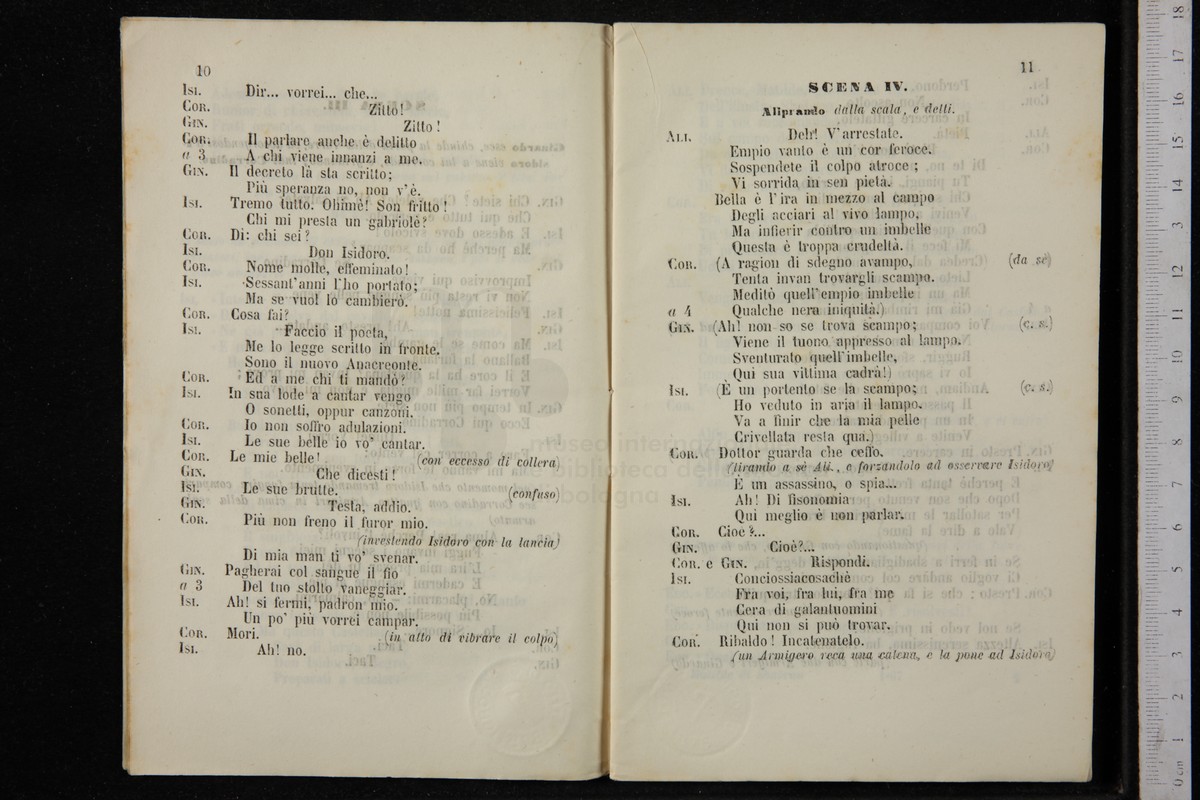 10
Isi. Dir... vorrei... che...
Cor. Zitto!
Gin. Zitto!
Cor. Il parlare anche è delitto
a 3 A chi viene innanzi a me.
Gin. Il decreto là sta scritto;
Più speranza no, non v'è.
Isi. Tremo tutto. Ohimè! Son fritto!
Chi mi presta un gabriolè?
Cor. Di: chi sei?
Isi. Don Isidoro.
Cor. Nome molle, effeminato!
Isi. Sessant'anni l'ho portato;
Ma se vuol lo cambierò.
Cor. Cosa fai?
Isi. Faccio il poeta,
Me lo legge scritto in fronte.
Sono il nuovo Anacreonte.
Cor. Ed a me chi ti mandò?
Isi. In sua lode a cantar vengo
O sonetti, oppur canzoni.
Cor. Io non soffro adulazioni.
Isi. Le sue belle io vo' cantar.
Cor. Le mie belle! (con eccesso di collera)
Gin. Che dicesti!
Isi. Le sue brutte. (confuso)
Gin. Testa, addio.
Cor. Più non freno il furor mio.
(investendo Isidoro con la lancia)
Di mia man ti vo' svenar.
Gin. Pagherai col sangue il fio
a 3 Del tuo stolto vaneggiar.
Isi. Ah! si fermi, padron mio.
Un po' più vorrei campar.
Cor. Mori. (in atto di vibrare il colpo)
Isi. Ah! no.
11
SCENA IV.
Aliprando dalla scala, e detti.
Ali. Deh! V'arrestate.
Empio vanto è un cor feroce.
Sospendete il colpo atroce;
Vi sorrida in sen pietà.
Bella è l'ira in mezzo al campo
Degli acciari al vivo lampo,
Ma infierir contro un imbelle
Questa è troppa crudeltà.
Cor. (A ragion di sdegno avampo, (da sè)
Tenta invan trovargli scampo.
Meditò quell'empio imbelle
a 4 Qualche nera iniquità.)
Gin. (Ah! non so se trova scampo; (c. s.)
Viene il tuono appresso al lampo.
Sventurato quell'imbelle,
Qui sua vittima cadrà!)
Isi. (È un portento se la scampo; (c. s.)
Ho veduto in aria il lampo.
Va a finir che la mia pelle
Crivellata resta qua.)
Cor. Dottor guarda che ceffo.
(tirando a sè Ali., e forzandolo ad osservare Isidoro)
È un assassino, o spia...
Isi. Ah! Di fisonomia
Qui meglio è non parlar.
Cor. Cioè?...
Gin. Cioè?...
Cor. e Gin. Rispondi.
Isi. Conciossiacosachè
Fra voi, fra lui, fra me
Cera di galantuomini
Qui non si può trovar.
Cor. Ribaldo! Incatenatelo.
(un Armigero reca una catena, e la pone ad Isidoro)